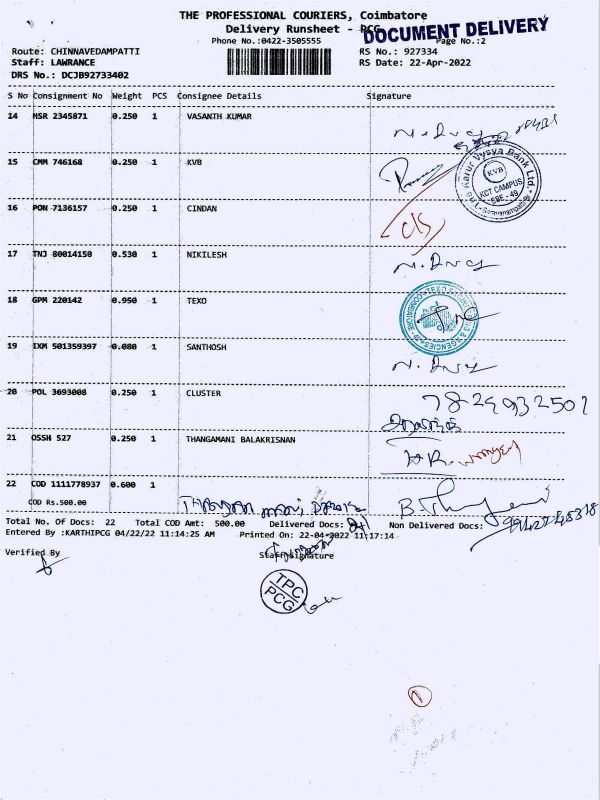 THE PROFESSIONAL COURIERS, Coimbatore
Delivery Runsheet - PCG
DOCUMENT DELIVERY
Phone No.:0422-3505555 Page No.:2
Route: CHINNAVEDAMPATTI RS No.: 927334
Staff: LAWRANCE RS Date: 22-Apr-2022
DRS No.: DCJB92733402
S No Consignment No Weight PCS Consignee Details Signature
14 HSR 2345871 0.250 1 VASANTH KUMAR
15 CMM 746168 0.250 1 KVB
Karur Vysya Bank Ltd.
KVB
KCT CAMPUS
16 PON 7136157 0.250 1 CINDAN
17 TNJ 80014150 0.530 1 NIKILESH
18 GPM 220142 0.950 1 TEXO
19 IXM 501359397 0.080 1 SANTHOSH
20 POL 3693008 0.250 1 CLUSTER
7829932501
21 OSSH 527 0.250 1 THANGAMANI BALAKRISNAN
22 COD 1111778937 0.600 1
COD Rs.500.00
Total No. Of Docs: 22 Total COD Amt: 500.00 Delivered Docs: Non Delivered Docs:
Entered By :KARTHIPCG 04/22/22 11:14:25 AM Printed On: 22-04-2022 11:17:14
Verified By Staff Signature
TPC
PCG